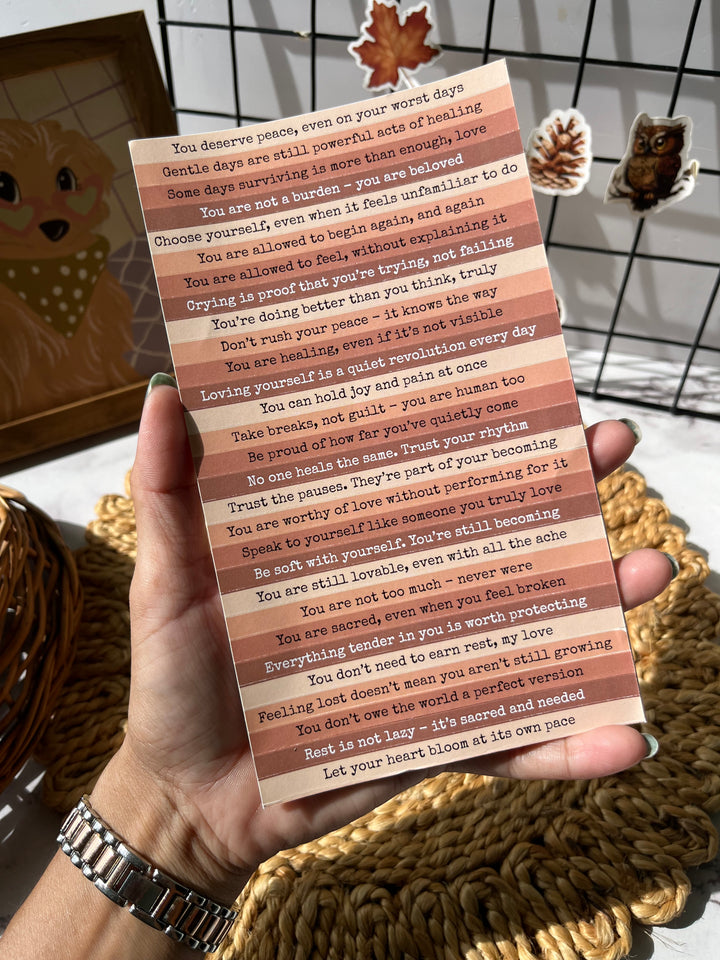 You deserve peace, even on your worst days
Gentle days are still powerful acts of healing
Some days surviving is more than enough, love
You are not a burden – you are beloved
Choose yourself, even when it feels unfamiliar to do
You are allowed to begin again, and again
You are allowed to feel, without explaining it
Crying is proof that you're trying, not failing
You're doing better than you think, truly
Don't rush your peace – it knows the way
You are healing, even if it's not visible
Loving yourself is a quiet revolution every day
You can hold joy and pain at once
Take breaks, not guilt – you are human too
Be proud of how far you've quietly come
No one heals the same. Trust your rhythm
Trust the pauses. They're part of your becoming
You are worthy of love without performing for it
Speak to yourself like someone you truly love
Be soft with yourself. You're still becoming
You are still lovable, even with all the ache
You are not too much – never were
You are sacred, even when you feel broken
Everything tender in you is worth protecting
You don't need to earn rest, my love
Feeling lost doesn't mean you aren't still growing
You don't owe the world a perfect version
Rest is not lazy – it's sacred and needed
Let your heart bloom at its own pace